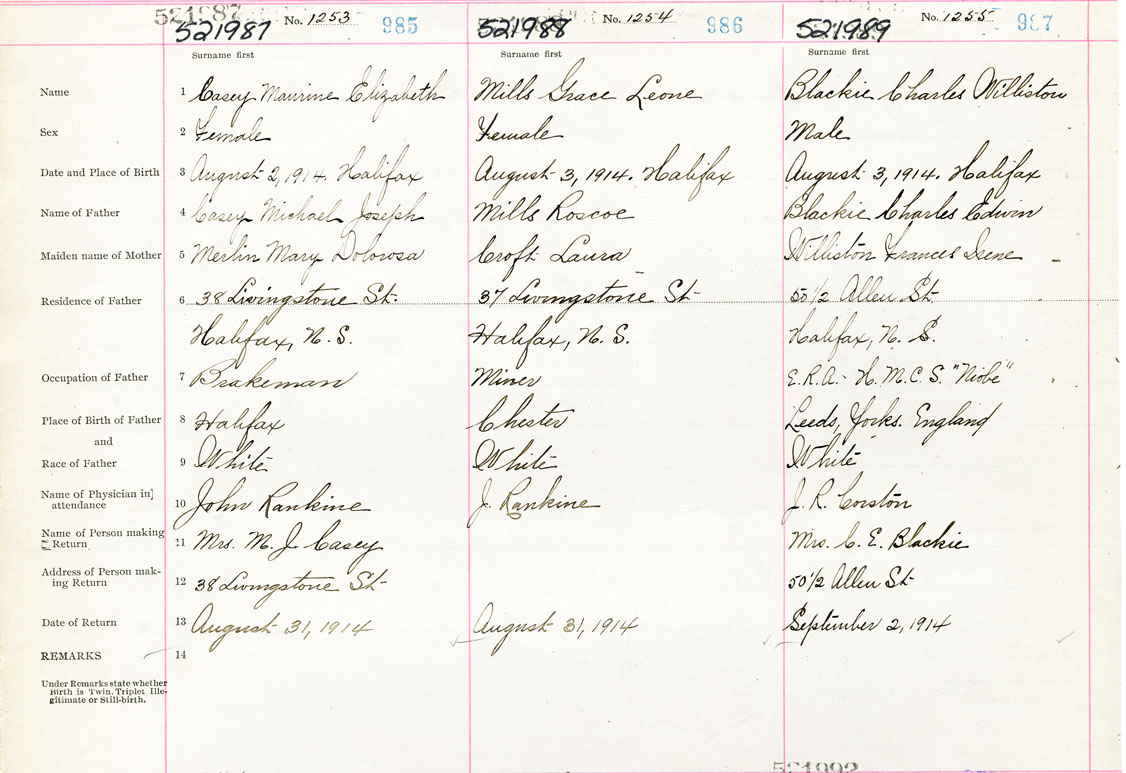 521987 No. 1253 985 521988 No. 1254 986 521989 No. 1255 987
521987 521988 521989
Surname first Surname first Surname first
Name 1 Casey Maurine Elizabeth Mills Grace Leone Blackie Charles Williston
Sex 2 Female Female Male
Date and Place of Birth 3 August 2, 1914. Halifax August 3, 1914. Halifax August 3, 1914. Halifax
Name of Father 4 Casey Michael Joseph Mills Roscoe Blackie Charles Edwin
Maiden name of Mother 5 Merlin Mary Dolorosa Croft Laura Williston Frances Irene
Residence of Father 6 38 Livingstone St. 37 Livingstone St 50 1/2 Allen St.
Halifax, N. S. Halifax, N. S. Halifax, N. S.
Occupation of Father 7 Brakeman Miner E.R.A. - H.M.C.S. "Niobe"
Place of Birth of Father 8 Halifax Chester Leeds, Yorks. England
and
Race of Father 9 White White White
Name of Physician in
attendance 10 John Rankine J. Rankine J. R. Corston
Name of Person making
Return 11 Mrs. M. J. Casey Mrs. C. E. Blackie
Address of Person mak-
ing Return 12 38 Livingstone St 50 1/2 Allen St
Date of Return 13 August 31, 1914 August 31, 1914 September 2, 1914
REMARKS 14
Under Remarks state whether
Birth is Twin, Triplet Ille-
gitimate or Still-birth.
521992